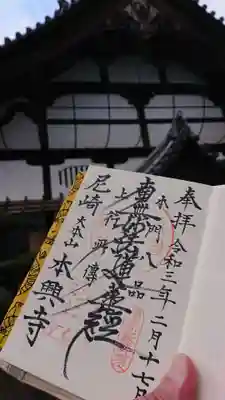 奉拝 令和三年 二月十七日
本門八品
南無妙法蓮華経
上行所傳
尼崎 大本山 本興寺